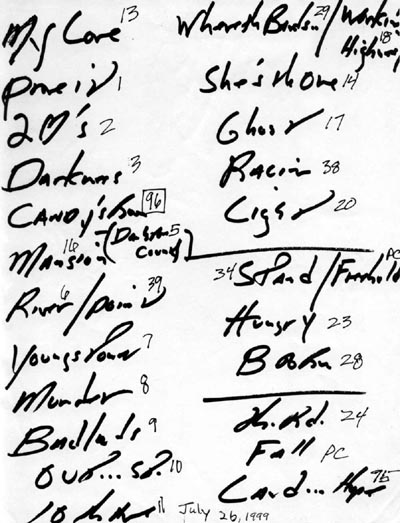 My Love 13
Prove it 1
2 ♥'s 2
Darkness 3
CANDY's Room 96
Mansion 16 (Darlington 5
County)
River 6 / Point 39
Youngstown 7
Murder 8
Badlands 9
OUT... St. 10
10th Ave 11 July 26, 1999
Where th Bands 29 / Workin
Highway 18
She's th One 14
Ghost 17
Racin 38
Light 20
34 Stand / Freehold PC
Hungry 23
B Born 28
Th. Rd. 24
Fall PC
Land... Hope 75